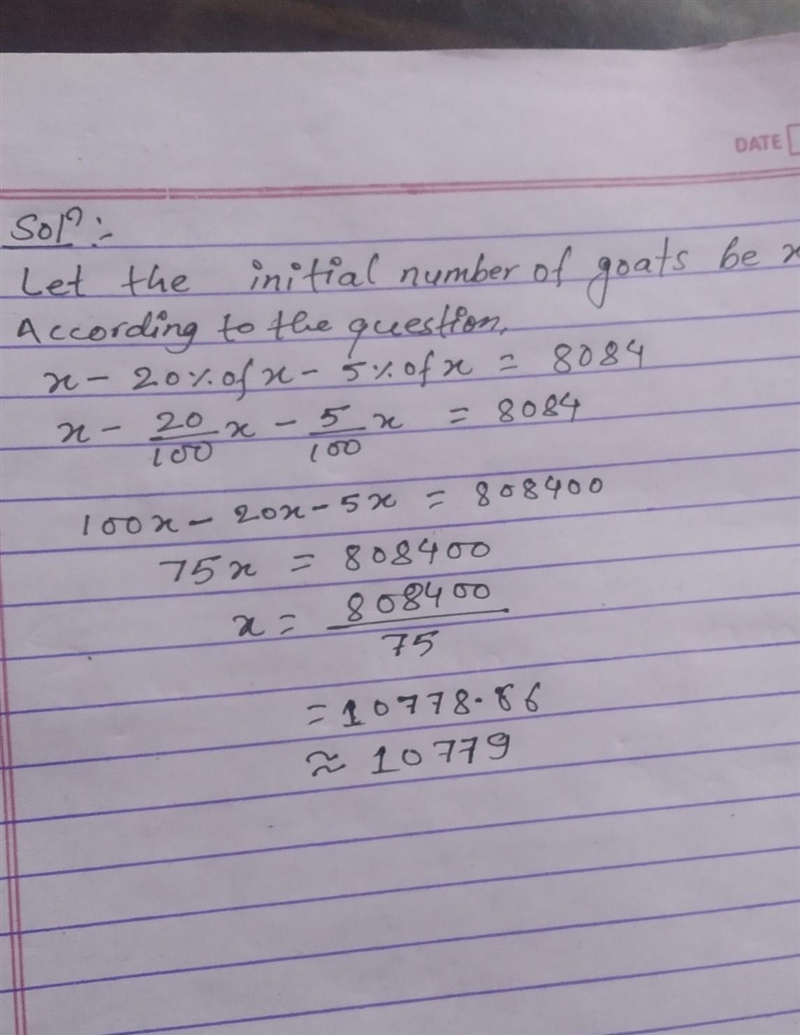 DATE
Solⁿ :-
Let the initial number of goats be x
According to the question,
x - 20% of x - 5% of x = 8084
x - 20/100 x - 5/100 x = 8084
100x - 20x - 5x = 808400
75x = 808400
x = 808400/75
= 10778.86
≈ 10779